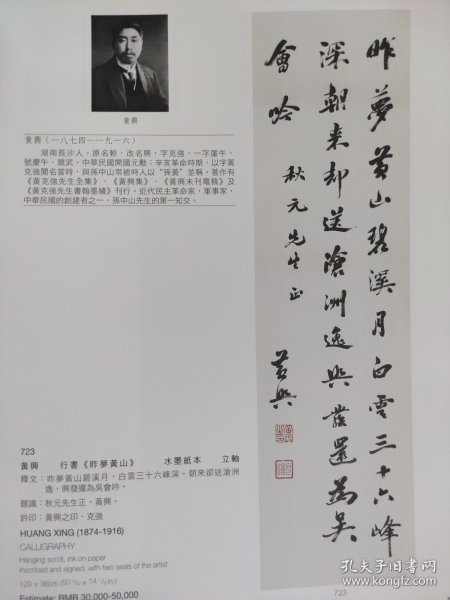 黃興
黃興（一八七四—一九一六）
湖南長沙人。原名軫，改名興，字克強，一字廑午，
號慶午、競武。中華民國開國元勳；辛亥革命時期，以字黃
克強聞名當時，與孫中山常被時人以“孫黃”並稱。著作有
《黃克強先生全集》、《黃興集》、《黃興未刊電稿》及
《黃克強先生書翰墨績》刊行。近代民主革命家，軍事家，
中華民國的創建者之一，孫中山先生的第一知交。
昨夢黃山碧溪月白雲三十六峰
深朝来却送滄洲逸興發還為吳
會吟
秋元先生正
黃興
723
黃興 行書《昨夢黃山》 水墨紙本 立軸
釋文：昨夢黃山碧溪月，白雲三十六峰深。朝來卻送滄洲
逸，興發還為吳會吟。
題識：秋元先生正，黃興。
鈐印：黃興之印、克強
HUANG XING (1874-1916)
CALLIGRAPHY
Hanging scroll, ink on paper
Inscribed and signed, with two seals of the artist
129 × 36cm (50 3/4 × 14 1/8 in.)
Estimate: RMB 30,000-50,000
723
孔夫子旧书网